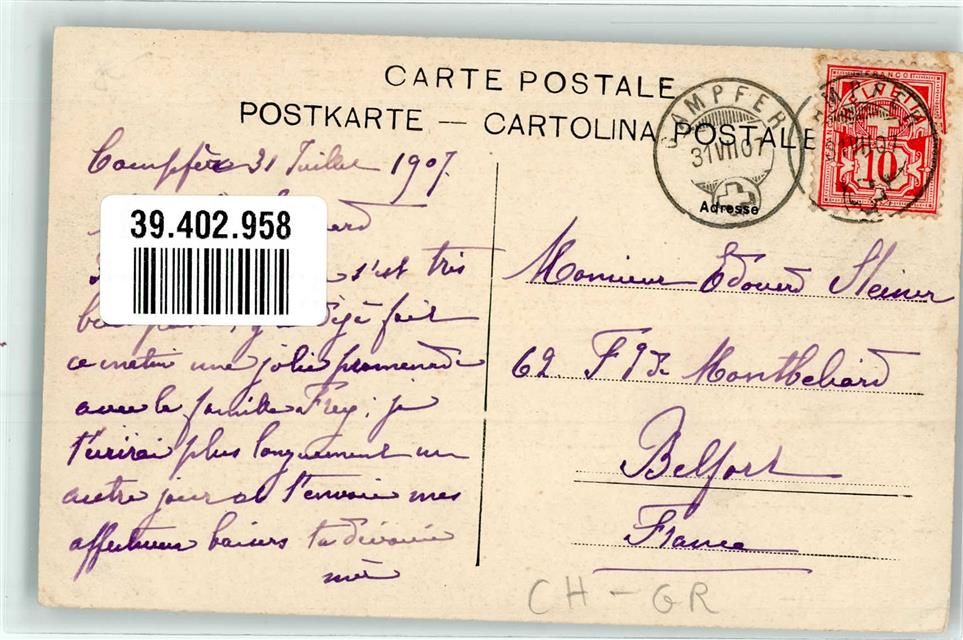 CARTE POSTALE
POSTKARTE — CARTOLINA POSTALE
CAMPFER
31 VII 07
Adresse
FRANCO
HELVETIA
10
Campfèr 31 Juillet 1907.
39.402.958
s'est très
déjà fait
ce matin une jolie promenade
avec la famille Frey; je
t'écrirai plus longuement un
autre jour et t'envoie mes
affectueux baisers ta dévouée
mère
Monsieur Edouard Steiner
62 Fg de Montbeliard
Belfort
France
CH - GR